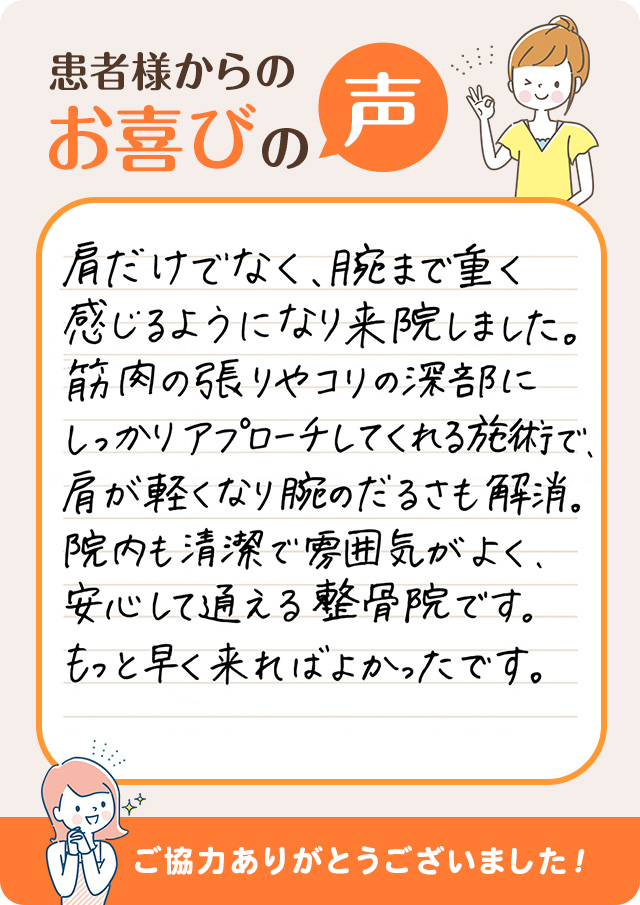 患者様からの
お喜びの声
肩だけでなく、腕まで重く
感じるようになり来院しました。
筋肉の張りやコリの深部に
しっかりアプローチしてくれる施術で、
肩が軽くなり腕のだるさも解消。
院内も清潔で雰囲気がよく、
安心して通える整骨院です。
もっと早く来ればよかったです。
ご協力ありがとうございました!